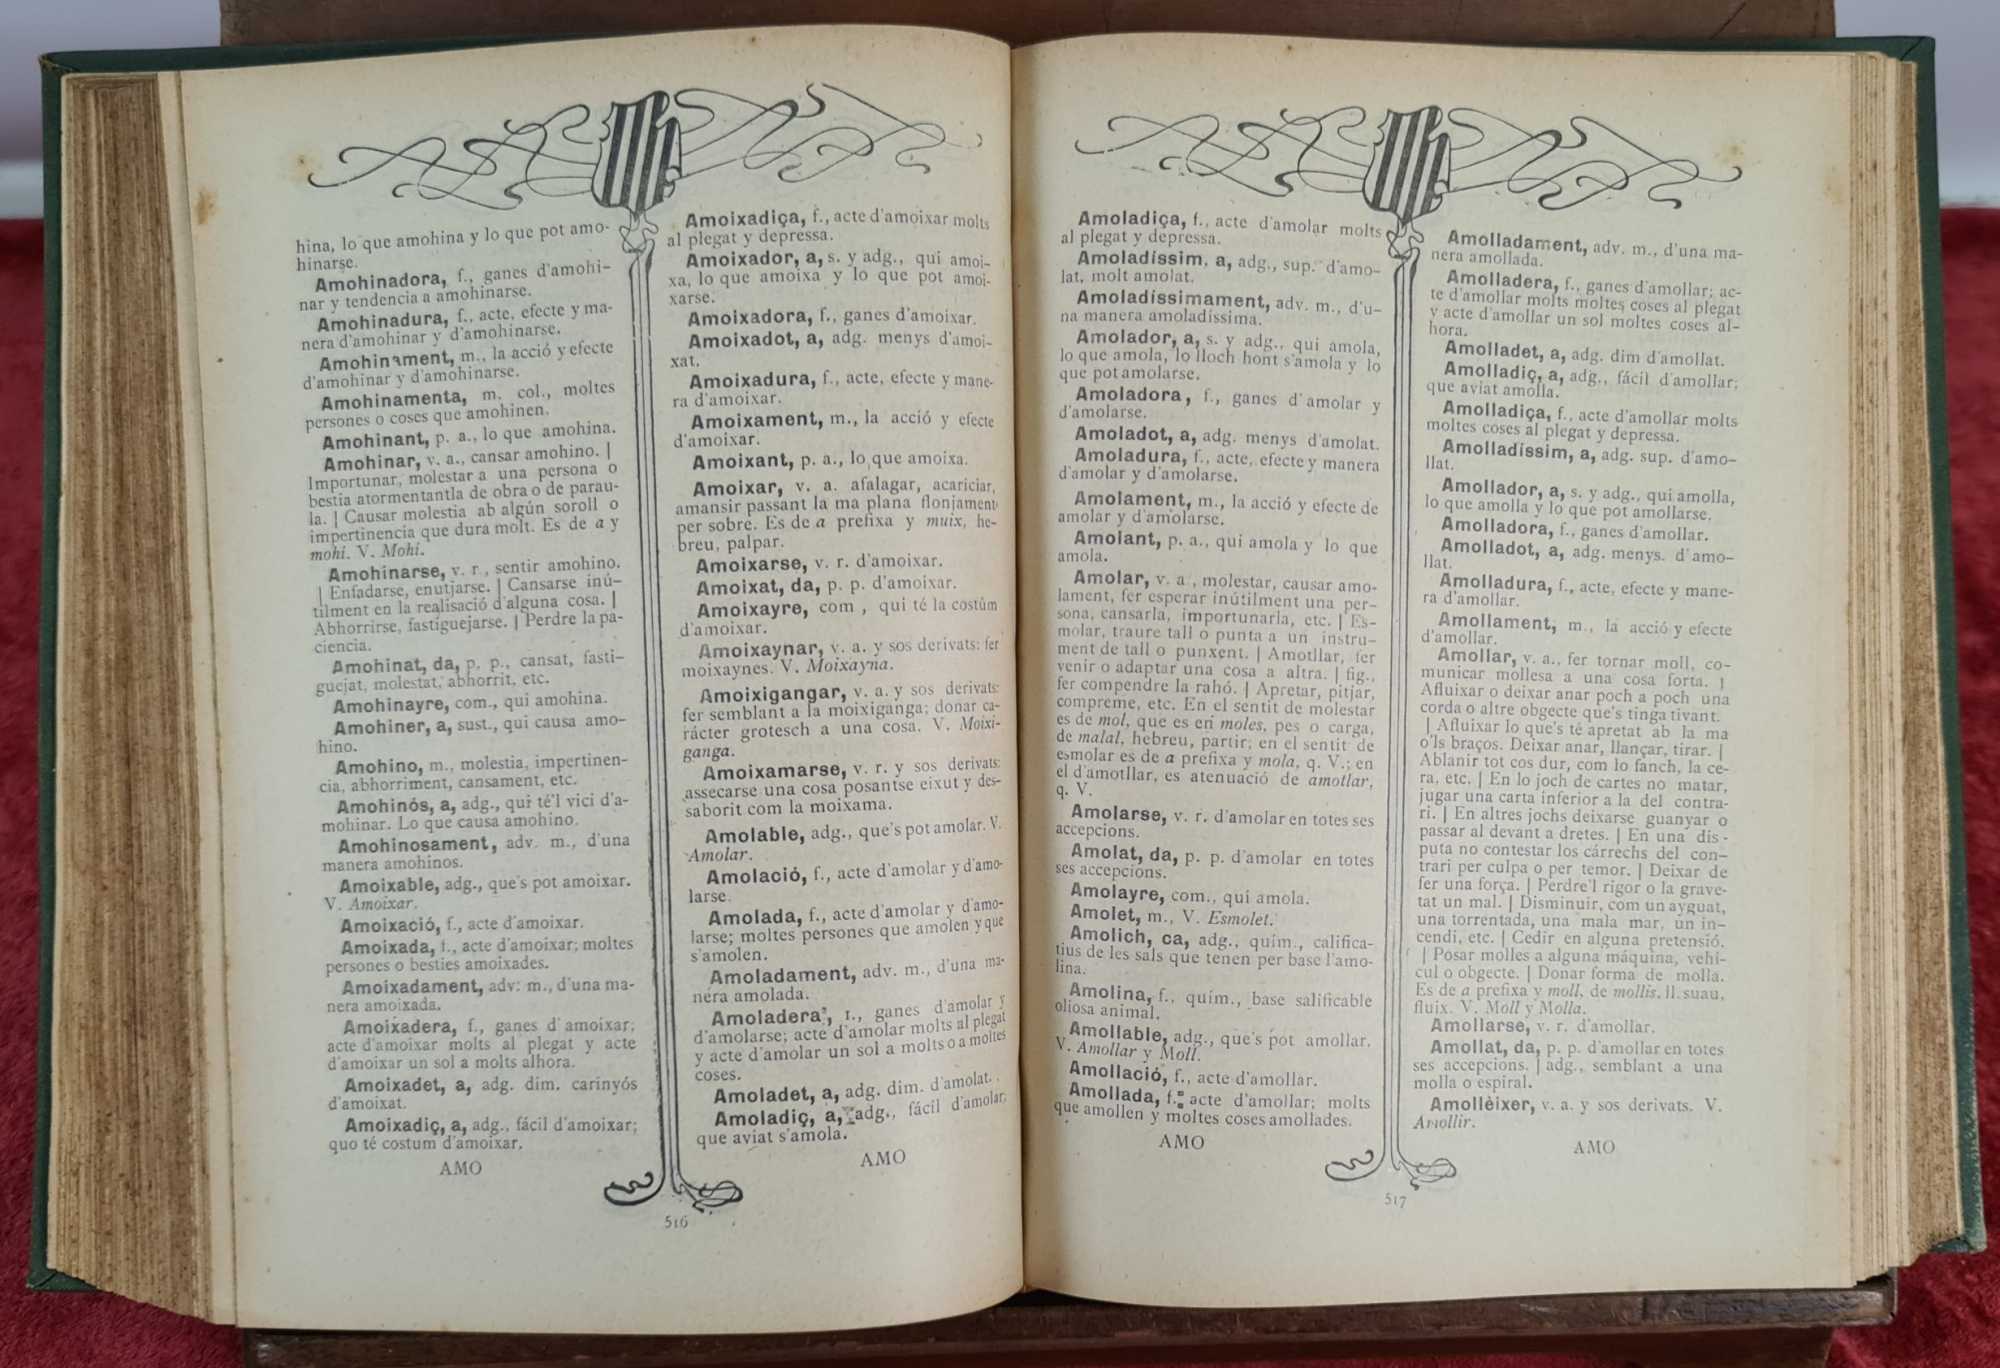 hina, lo que amohina y lo que pot amo-
hinarse.
Amohinadora, f., ganes d'amohi-
nar y tendencia a amohinarse.
Amohinadura, f., acte, efecte y ma-
nera d'amohinar y d'amohinarse.
Amohinament, m., la acció y efecte
d'amohinar y d'amohinarse.
Amohinamenta, m. col., moltes
persones o coses que amohinen.
Amohinant, p. a., lo que amohina.
Amohinar, v. a., cansar amohino. |
Importunar, molestar a una persona o
bestia atormentantla de obra o de parau-
la. | Causar molestia ab algún soroll o
impertinencia que dura molt. Es de a y
mohí. V. Mohí.
Amohinarse, v. r., sentir amohino.
| Enfadarse, enutjarse. | Cansarse inú-
tilment en la realisació d'alguna cosa. |
Abhorrirse, fastiguejarse. | Perdre la pa-
ciencia.
Amohinat, da, p. p., cansat, fasti-
guejat, molestat, abhorrit, etc.
Amohinayre, com., qui amohina.
Amohiner, a, sust., qui causa amo-
hino.
Amohino, m., molestia, impertinen-
cia, abhorriment, cansament, etc.
Amohinós, a, adg., qui té'l vici d'a-
mohinar. Lo que causa amohino.
Amohinosament, adv. m., d'una
manera amohinos.
Amoixable, adg., que's pot amoixar.
V. Amoixar.
Amoixació, f., acte d'amoixar.
Amoixada, f., acte d'amoixar; moltes
persones o besties amoixades.
Amoixadament, adv: m., d'una ma-
nera amoixada.
Amoixadera, f., ganes d'amoixar;
acte d'amoixar molts al plegat y acte
d'amoixar un sol a molts alhora.
Amoixadet, a, adg. dim. carinyós
d'amoixat.
Amoixadiç, a, adg., fácil d'amoixar;
quo té costum d'amoixar.
AMO
Amoixadiça, f., acte d'amoixar molts
al plegat y depressa.
Amoixador, a, s. y adg., qui amoi-
xa, lo que amoixa y lo que pot amoi-
xarse.
Amoixadora, f., ganes d'amoixar.
Amoixadot, a, adg. menys d'amoi-
xat.
Amoixadura, f., acte, efecte y mane-
ra d'amoixar.
Amoixament, m., la acció y efecte
d'amoixar.
Amoixant, p. a., lo que amoixa.
Amoixar, v. a. afalagar, acariciar,
amansir passant la ma plana flonjament
per sobre. Es de a prefixa y muix, he-
breu, palpar.
Amoixarse, v. r. d'amoixar.
Amoixat, da, p. p. d'amoixar.
Amoixayre, com , qui té la costúm
d'amoixar.
Amoixaynar, v. a. y sos derivats: fer
moixaynes. V. Moixayna.
Amoixigangar, v. a. y sos derivats:
fer semblant a la moixiganga; donar ca-
rácter grotesch a una cosa. V. Moixi-
ganga.
Amoixamarse, v. r. y sos derivats:
assecarse una cosa posantse eixut y des-
saborit com la moixama.
Amolable, adg., que's pot amolar. V.
Amolar.
Amolació, f., acte d'amolar y d'amo-
larse.
Amolada, f., acte d'amolar y d'amo-
larse; moltes persones que amolen y que
s'amolen.
Amoladament, adv. m., d'una ma-
nera amolada.
Amoladera, f., ganes d'amolar y
d'amolarse; acte d'amolar molts al plegat
y acte d'amolar un sol a molts o a moltes
coses.
Amoladet, a, adg. dim. d'amolat.
Amoladiç, a, adg., fácil d'amolar,
que aviat s'amola.
AMO
516
Amoladiça, f., acte d'amolar molts
al plegat y depressa.
Amoladíssim, a, adg., sup. d'amo-
lat, molt amolat.
Amoladíssimament, adv. m., d'u-
na manera amoladíssima.
Amolador, a, s. y adg., qui amola,
lo que amola, lo lloch hont s'amola y lo
que pot amolarse.
Amoladora, f., ganes d'amolar y
d'amolarse.
Amoladot, a, adg. menys d'amolat.
Amoladura, f., acte, efecte y manera
d'amolar y d'amolarse.
Amolament, m., la acció y efecte de
amolar y d'amolarse.
Amolant, p. a., qui amola y lo que
amola.
Amolar, v. a , molestar, causar amo-
lament, fer esperar inútilment una per-
sona, cansarla, importunarla, etc. | Es-
molar, traure tall o punta a un instru-
ment de tall o punxent. | Amotllar, fer
venir o adaptar una cosa a altra. | fig.,
fer compendre la rahó. | Apretar, pitjar,
compreme, etc. En el sentit de molestar
es de mol, que es en moles, pes o carga,
de malal, hebreu, partir; en el sentit de
esmolar es de a prefixa y mola, q. V.; en
el d'amotllar, es atenuació de amotlar,
q. V.
Amolarse, v. r. d'amolar en totes ses
accepcions.
Amolat, da, p. p. d'amolar en totes
ses accepcions.
Amolayre, com., qui amola.
Amolet, m., V. Esmolet.
Amolich, ca, adg., quím., califica-
tius de les sals que tenen per base l'amo-
lina.
Amolina, f., quím., base salificable
oliosa animal.
Amollable, adg., que's pot amollar.
V. Amollar y Moll.
Amollació, f., acte d'amollar.
Amollada, f., acte d'amollar; molts
que amollen y moltes coses amollades.
AMO
Amolladament, adv. m., d'una ma-
nera amollada.
Amolladera, f., ganes d'amollar; ac-
te d'amollar molts moltes coses al plegat
y acte d'amollar un sol moltes coses al-
hora.
Amolladet, a, adg. dim d'amollat.
Amolladiç, a, adg., fácil d'amollar;
que aviat amolla.
Amolladiça, f., acte d'amollar molts
moltes coses al plegat y depressa.
Amolladíssim, a, adg. sup. d'amo-
llat.
Amollador, a, s. y adg., qui amolla,
lo que amolla y lo que pot amollarse.
Amolladora, f., ganes d'amollar.
Amolladot, a, adg. menys. d'amo-
llat.
Amolladura, f., acte, efecte y mane-
ra d'amollar.
Amollament, m., la acció y efecte
d'amollar.
Amollar, v. a., fer tornar moll, co-
municar mollesa a una cosa forta. |
Afluixar o deixar anar poch a poch una
corda o altre obgecte que's tinga tivant.
| Afluixar lo que's té apretat ab la ma
o'ls braços. Deixar anar, llançar, tirar. |
Ablanir tot cos dur, com lo fanch, la ce-
ra, etc. | En lo joch de cartes no matar,
jugar una carta inferior a la del contra-
ri. | En altres jochs deixarse guanyar o
passar al devant a dretes. | En una dis-
puta no contestar los cárrechs del con-
trari per culpa o per temor. | Deixar de
fer una força. | Perdre'l rigor o la grave-
tat un mal. | Disminuir, com un ayguat,
una torrentada, una mala mar, un in-
cendi, etc. | Cedir en alguna pretensió.
| Posar molles a alguna máquina, vehí-
cul o obgecte. | Donar forma de molla.
Es de a prefixa y moll, de mollis, ll. suau,
fluix. V. Moll y Molla.
Amollarse, v. r. d'amollar.
Amollat, da, p. p. d'amollar en totes
ses accepcions. | adg., semblant a una
molla o espiral.
Amollèixer, v. a. y sos derivats. V.
Amollir.
AMO
517